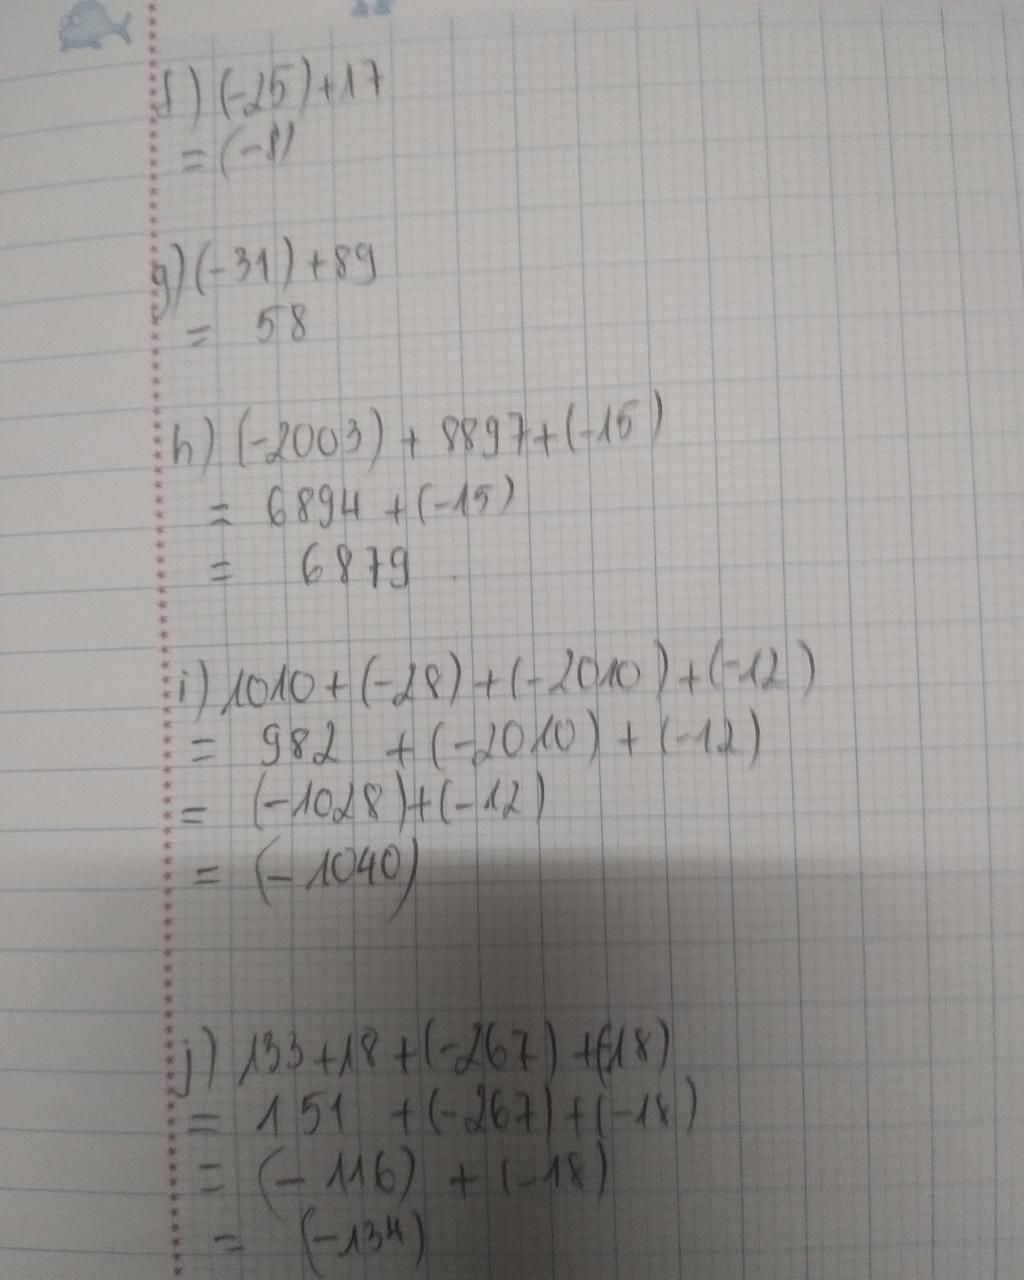 f) (-25)+17
= (-8)
g) (-31)+89
= 58
h) (-2003) + 8897+(-15)
= 6894 +(-15)
= 6879
i) 1010+(-28)+(-2010)+(-12)
= 982 +(-2010)+(-12)
= (-1028)+(-12)
= (-1040)
j) 133+18+(-267)+(-18)
= 151 +(-267)+(-18)
= (-116) + (-18)
= (-134)